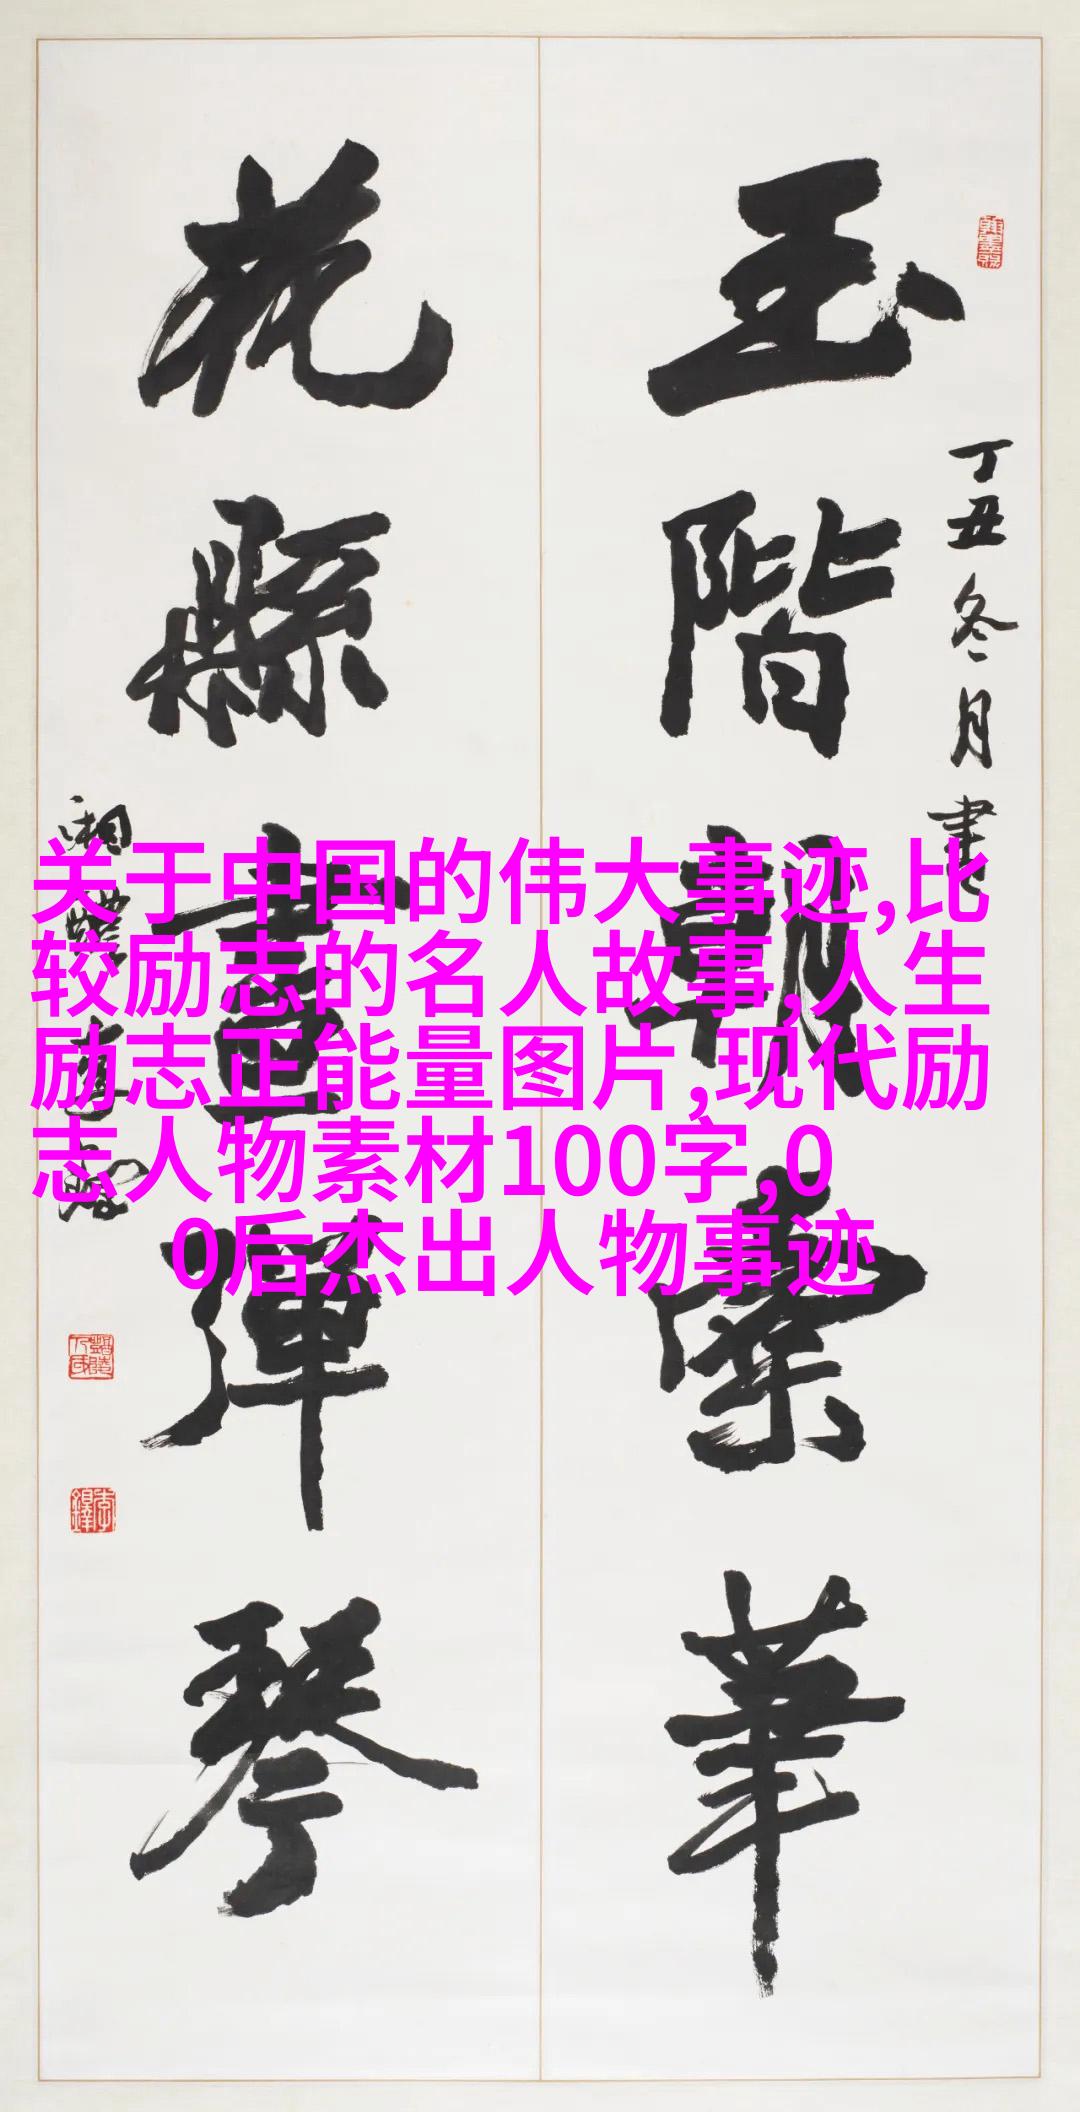 丁丑冬月書
玉階
華
花縣
彈琴
湘醴李鐸
李鐸
关于中国的伟大事迹,比
较励志的名人故事,人生
励志正能量图片,现代励
志人物素材100字,0
0后杰出人物事迹